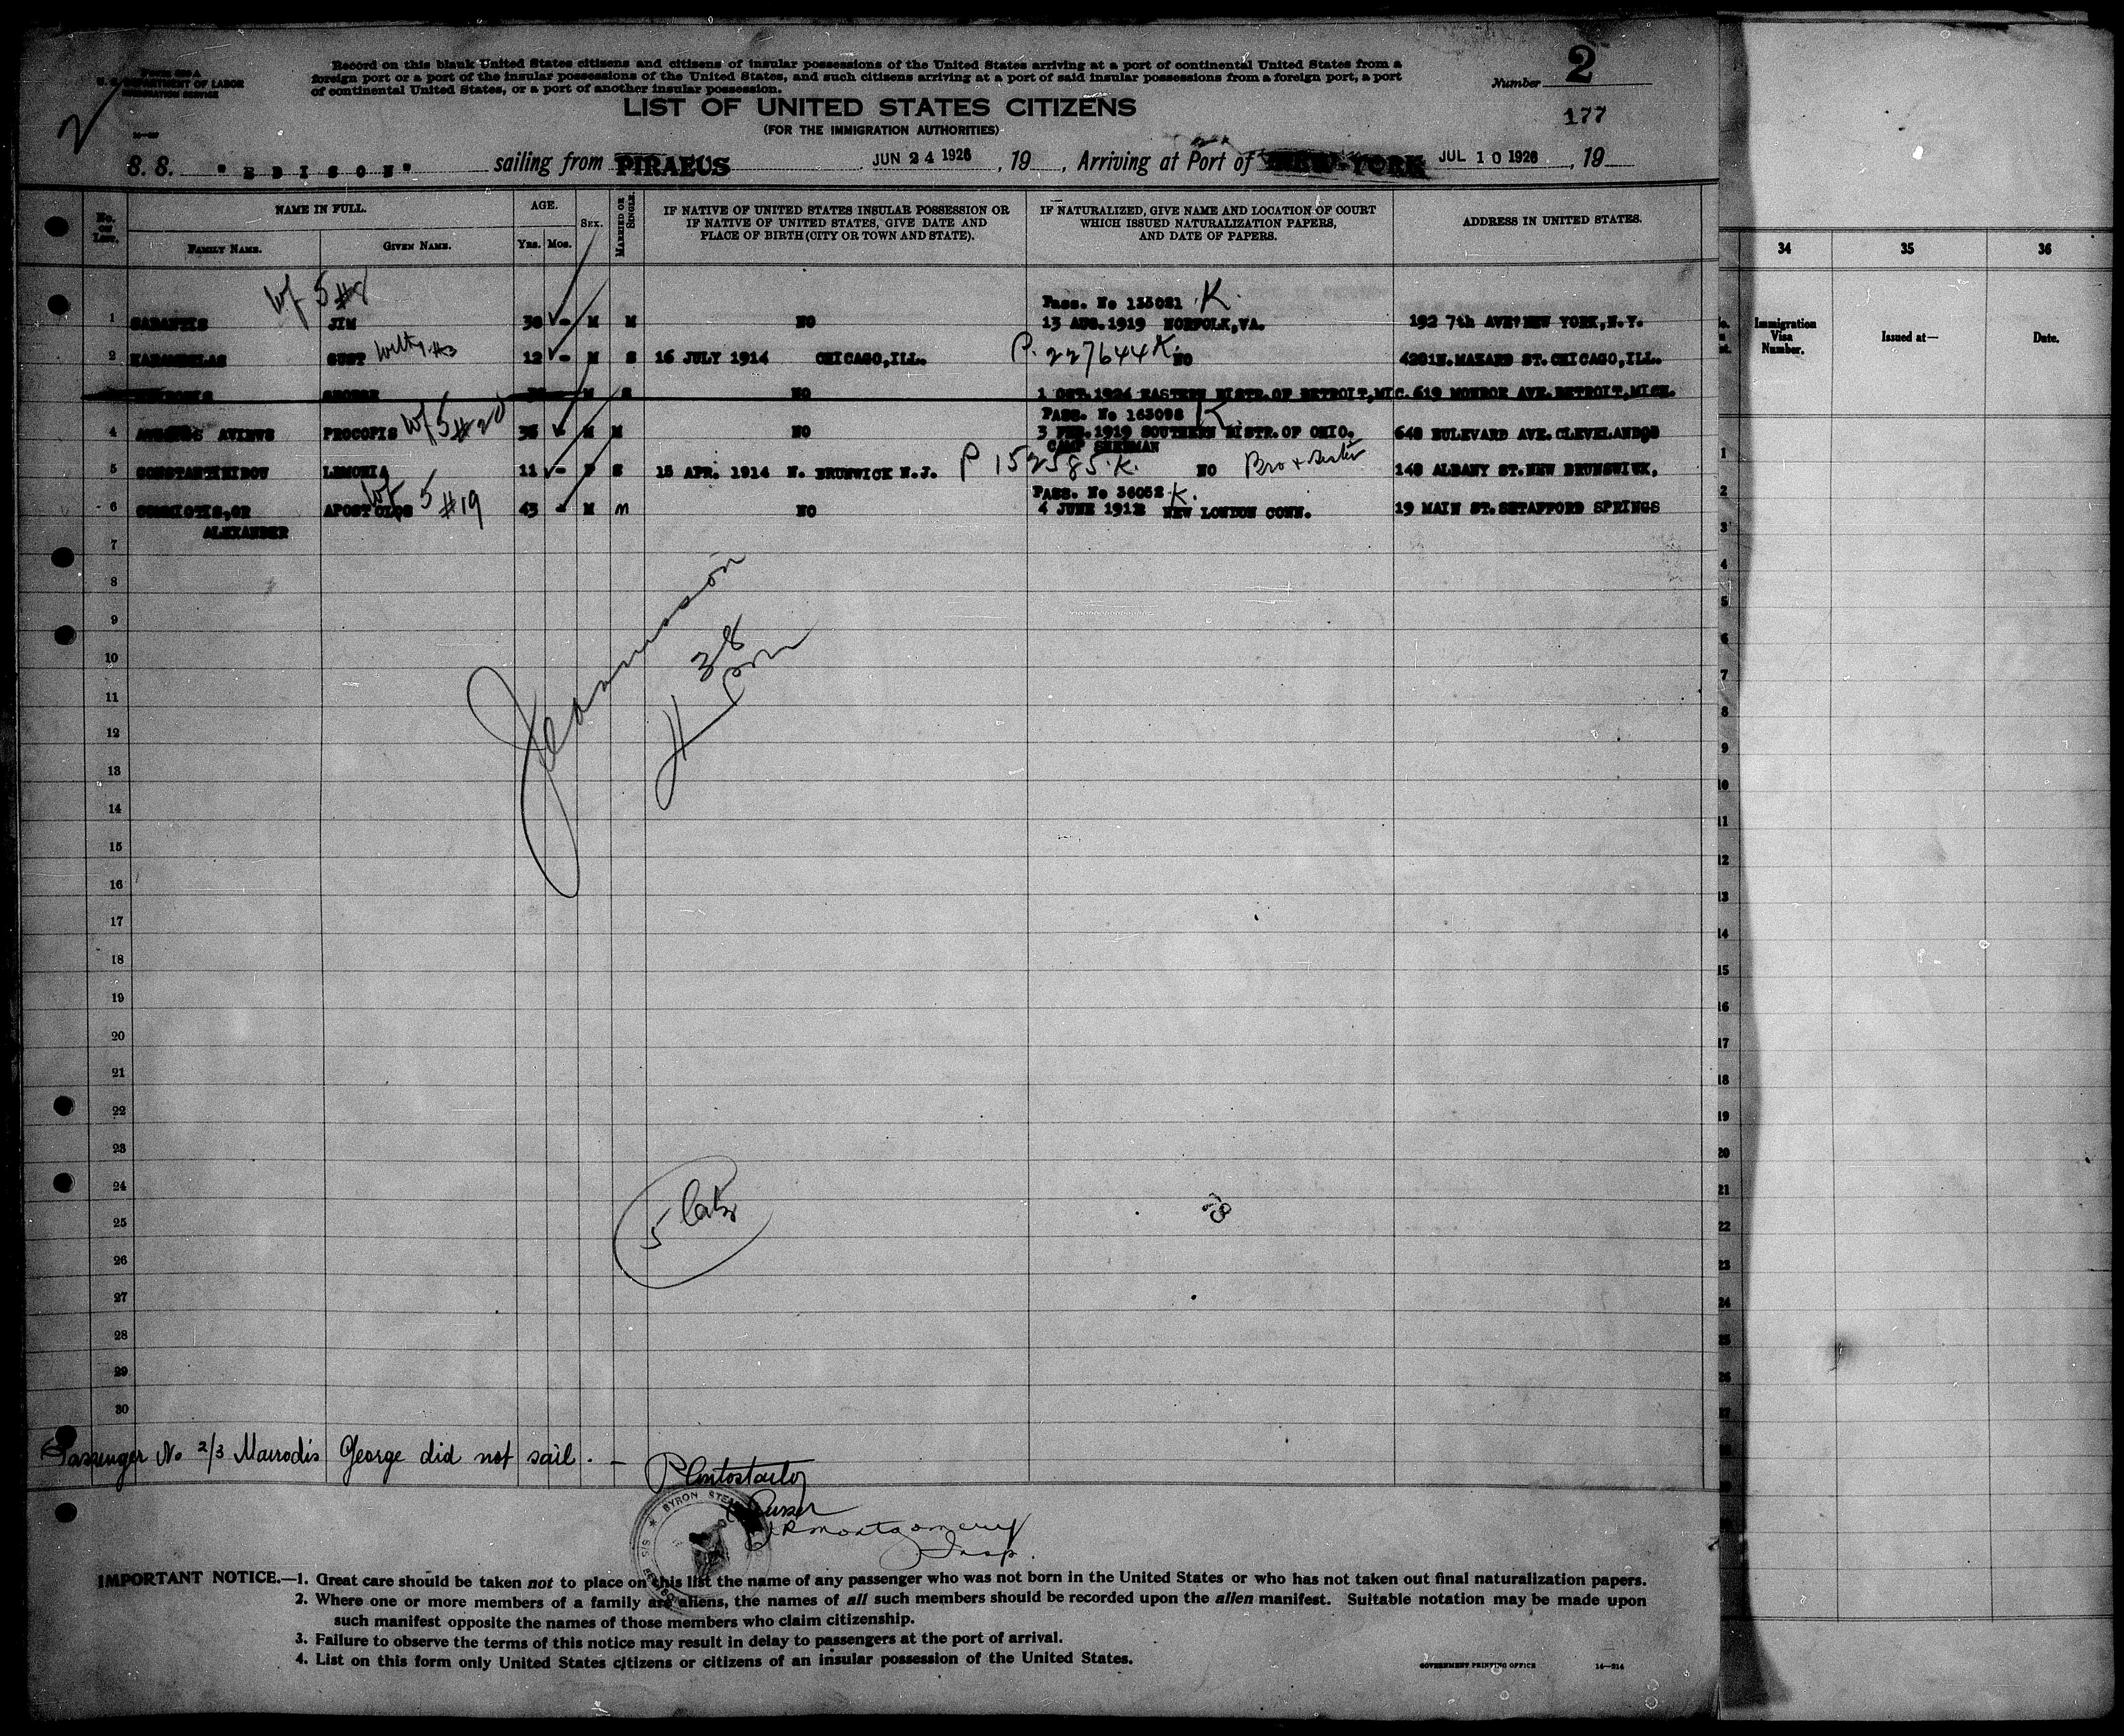 U. S. DEPARTMENT OF LABOR
IMMIGRATION SERVICE
Record on this blank United States citizens and citizens of insular possessions of the United States arriving at a port of continental United States from a
foreign port or a port of the insular possessions of the United States, and such citizens arriving at a port of said insular possessions from a foreign port, a port
of continental United States, or a port of another insular possession.
Number 2
LIST OF UNITED STATES CITIZENS
177
(FOR THE IMMIGRATION AUTHORITIES)
2
S. S. "EDISON" sailing from PIRAEUS JUN 24 1926, 19 , Arriving at Port of NEW-YORK JUL 10 1926, 19
No. on List. NAME IN FULL. AGE. SEX. MARRIED OR SINGLE.
FAMILY NAME. GIVEN NAME. Yrs. Mos.
IF NATIVE OF UNITED STATES INSULAR POSSESSION OR
IF NATIVE OF UNITED STATES, GIVE DATE AND
PLACE OF BIRTH (CITY OR TOWN AND STATE).
IF NATURALIZED, GIVE NAME AND LOCATION OF COURT
WHICH ISSUED NATURALIZATION PAPERS,
AND DATE OF PAPERS.
ADDRESS IN UNITED STATES.
34 35 36
Immigration Visa Number. Issued at— Date.
wf 5 #8
Pass. No 133021 K.
1 SARANTIS JIM 30 - M M NO 13 AUG.1919 NORFOLK,VA. 192 7th AVE. NEW YORK,N.Y.
2 KARAMBELAS GUST 12 - M S 16 JULY 1914 CHICAGO,ILL. P. 227644 K. NO CHICAGO,ILL.
GEORGE M S NO 1 OCT.1924 EASTERN DISTR.OF DETROIT,MIC. 619 MONROE AVE.DETROIT,MICH.
PASS. No 163098 K
4 PROCOPIS wf 5 #20 36 - M M NO 3 1919 SOUTHERN DISTR.OF OHIO. 648 BULEVARD AVE.CLEVELAND
CAMP SHERMAN
5 CONSTANTINIDOU LEMONIA 11 - F S 15 APR. 1914 N. BRUNWICK N.J. P 152585 K. NO Bro + sister 140 ALBANY ST.NEW BRUNSWIVK,
PASS. No 36052 K.
6 APOSTOLOS wf 5 #19 43 - M m NO 4 JUNE 1912 NEW LONDON CONN. 19 MAIN ST.SETAFFORD SPRINGS
ALEXANDER
7
8
9
10
11
12
13
14
15
16
17
18
19
20
21
22
23
24
25
26
27
28
29
30
38
5
Passenger No 2/3 Mavrodis George did not sail. -
Purser
BYRON
JRMontgomery
Insp.
IMPORTANT NOTICE.—1. Great care should be taken not to place on this list the name of any passenger who was not born in the United States or who has not taken out final naturalization papers.
2. Where one or more members of a family are aliens, the names of all such members should be recorded upon the alien manifest. Suitable notation may be made upon
such manifest opposite the names of those members who claim citizenship.
3. Failure to observe the terms of this notice may result in delay to passengers at the port of arrival.
4. List on this form only United States citizens or citizens of an insular possession of the United States.
GOVERNMENT PRINTING OFFICE 14—214